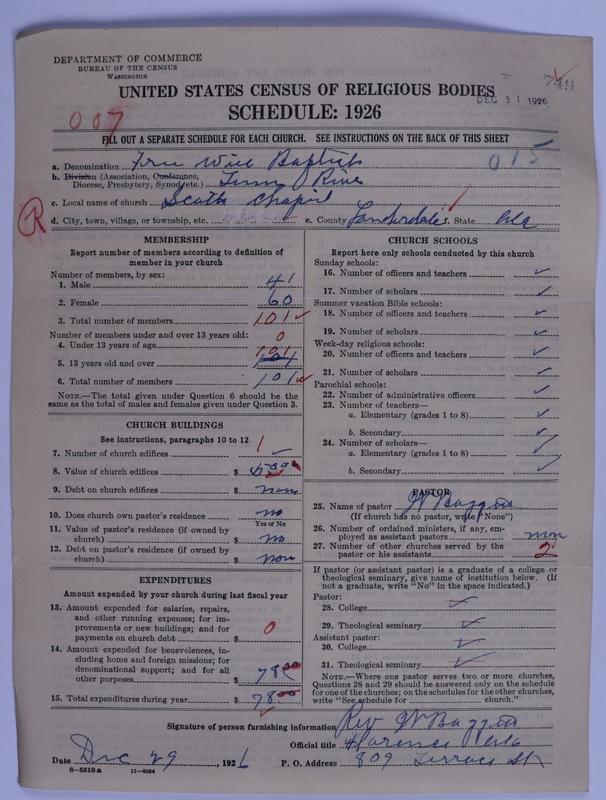 DEPARTMENT OF COMMERCE
BUREAU OF THE CENSUS
WASHINGTON
UNITED STATES CENSUS OF RELIGIOUS BODIES
DEC 31 1926
SCHEDULE: 1926
007
FILL OUT A SEPARATE SCHEDULE FOR EACH CHURCH. SEE INSTRUCTIONS ON THE BACK OF THIS SHEET
015
a. Denomination Free Will Baptist
b. Division (Association, Conference, Diocese, Presbytery, Synod, etc.)
c. Local name of church
R d. City, town, village, or township, etc. e. County Lauderdale f. State Ala
MEMBERSHIP
Report number of members according to definition of member in your church
Number of members, by sex:
1. Male 41
2. Female 60
3. Total number of members 101
Number of members under and over 13 years old:
4. Under 13 years of age 0
5. 13 years old and over 101
6. Total number of members 101
NOTE.—The total given under Question 6 should be the same as the total of males and females given under Question 3.
CHURCH BUILDINGS
See instructions, paragraphs 10 to 12
7. Number of church edifices 1
8. Value of church edifices $
9. Debt on church edifices $ none
10. Does church own pastor's residence no
Yes or No
11. Value of pastor's residence (if owned by church) $ no
12. Debt on pastor's residence (if owned by church) $ non
EXPENDITURES
Amount expended by your church during last fiscal year
13. Amount expended for salaries, repairs, and other running expenses; for improvements or new buildings; and for payments on church debt $ 0
14. Amount expended for benevolences, including home and foreign missions; for denominational support; and for all other purposes $ 78.00
15. Total expenditures during year $ 78.00
CHURCH SCHOOLS
Report here only schools conducted by this church
Sunday schools:
16. Number of officers and teachers
17. Number of scholars
Summer vacation Bible schools:
18. Number of officers and teachers
19. Number of scholars
Week-day religious schools:
20. Number of officers and teachers
21. Number of scholars
Parochial schools:
22. Number of administrative officers
23. Number of teachers—
a. Elementary (grades 1 to 8)
b. Secondary
24. Number of scholars—
a. Elementary (grades 1 to 8)
b. Secondary
PASTOR
25. Name of pastor
(If church has no pastor, write "None")
26. Number of ordained ministers, if any, employed as assistant pastors
27. Number of other churches served by the pastor or his assistants 2
If pastor (or assistant pastor) is a graduate of a college or theological seminary, give name of institution below. (If not a graduate, write "No" in the space indicated.)
Pastor:
28. College
29. Theological seminary
Assistant pastor:
30. College
31. Theological seminary
NOTE.—Where one pastor serves two or more churches, Questions 28 and 29 should be answered only on the schedule for one of the churches; on the schedules for the other churches, write "See schedule for church."
Signature of person furnishing information Rev
Official title Florence Ala
Date Dec 29, 1926 P. O. Address 809 Terrace St
8—5518a 11—9054